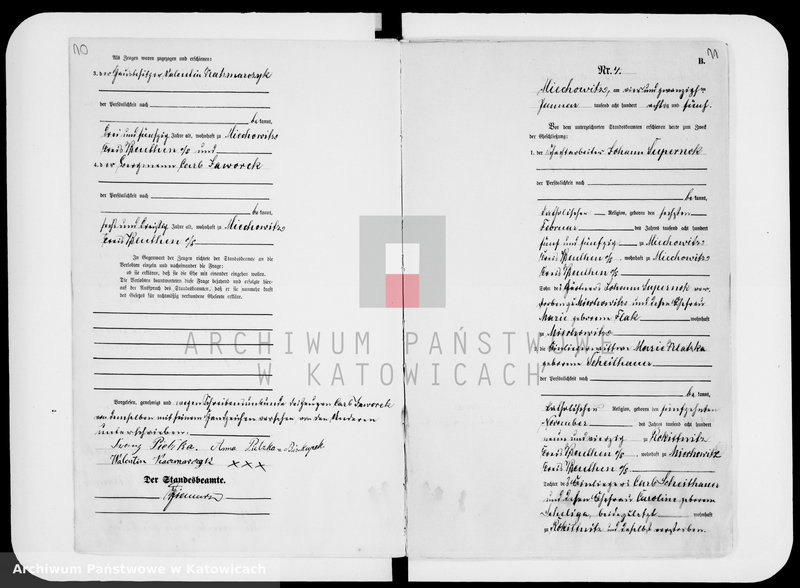 70
Als Zeugen waren zugezogen und erschienen:
3. der Hausbesitzer Valentin Katzmarczyk
der Persönlichkeit nach
be kannt,
drei und fünfzig Jahre alt, wohnhaft zu Miechowitz
Kreis Beuthen o/S und
4. der Bergmann Carl Jaworek
der Persönlichkeit nach
be kannt,
sechs und dreißig Jahre alt, wohnhaft zu Miechowitz
Kreis Beuthen o/S
In Gegenwart der Zeugen richtete der Standesbeamte an die
Verlobten einzeln und nacheinander die Frage:
ob sie erklären, daß sie die Ehe mit einander eingehen wollen.
Die Verlobten beantworteten diese Frage bejahend und erfolgte hier-
auf der Ausspruch des Standesbeamten, daß er sie nunmehr kraft
des Gesetzes für rechtmäßig verbundene Eheleute erkläre.
Vorgelesen, genehmigt und wegen Schreibensunkunde des Zeugen Carl Jaworek
von demselben mit seinem Handzeichen versehen von den Anderen
unterschrieben.
Franz Pielka. Anna
Valentin Kaczmarczyk XXX
Der Standesbeamte.
71
B.
Nr. 4.
Miechowitz, am vier und zwanzigsten
Januar tausend acht hundert achtzig und fünf.
Vor dem unterzeichneten Standesbeamten erschienen heute zum Zweck
der Eheschließung:
1. der Johann Supernok
der Persönlichkeit nach
be kannt,
katholischer Religion, geboren den sechzten
Februar des Jahres tausend acht hundert
fünf und fünfzig zu Miechowitz
Kreis Beuthen o/S, wohnhaft zu Miechowitz
Kreis Beuthen o/S
Sohn des Johann Supernok ver-
storben zu Miechowitz und dessen Ehefrau
Marie geborene Flak wohnhaft
zu Miechowitz
2. die Einliegerwittwe Marie
geborene Scheithauer
der Persönlichkeit nach
be kannt,
katholischer Religion, geboren den fünfzehnten
November des Jahres tausend acht hundert
neun und vierzig zu Rokittnitz
Kreis Beuthen o/S, wohnhaft zu Miechowitz
Kreis Beuthen o/S
Tochter des Einliegers Carl Scheithauer
und dessen Ehefrau Caroline geborene
beide zuletzt wohnhaft
zu Rokittnitz und daselbst verstorben.
ARCHIWUM PAŃSTWOWE
W KATOWICACH
Archiwum Państwowe w Katowicach